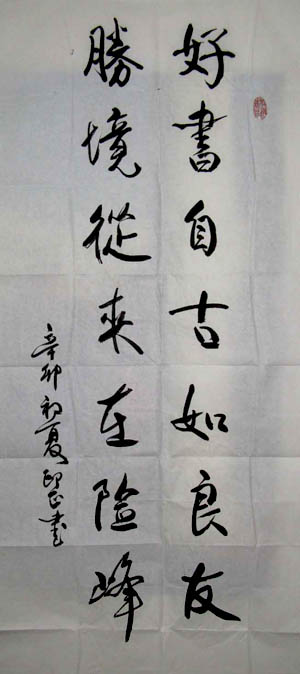 好書自古如良友
勝境從来在险峰
辛卯初夏印正書